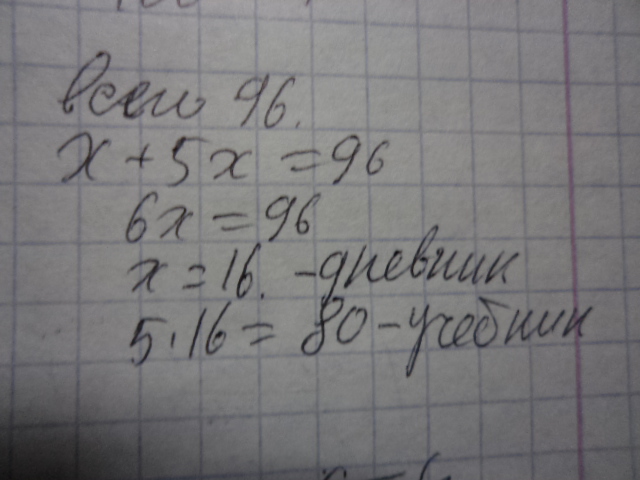 всего 96.
x + 5x = 96
6x = 96
x = 16. - дневник
5 · 16 = 80 - учебник